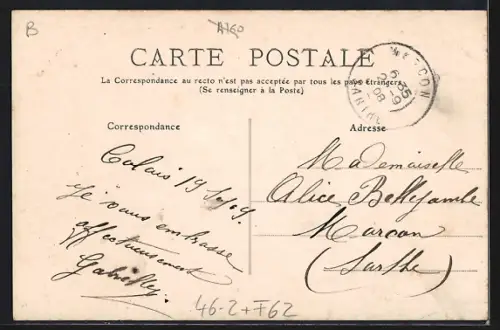 B
A760
CARTE POSTALE
La Correspondance au recto n'est pas acceptée par tous les pays étrangers
(Se renseigner à la Poste)
Correspondance
Adresse
6 35
Calais 19
Je vous embrasse
affectueusement
Mademoiselle
Alice Bellejambe
Marçon
(Sarthe)
46-2+F62